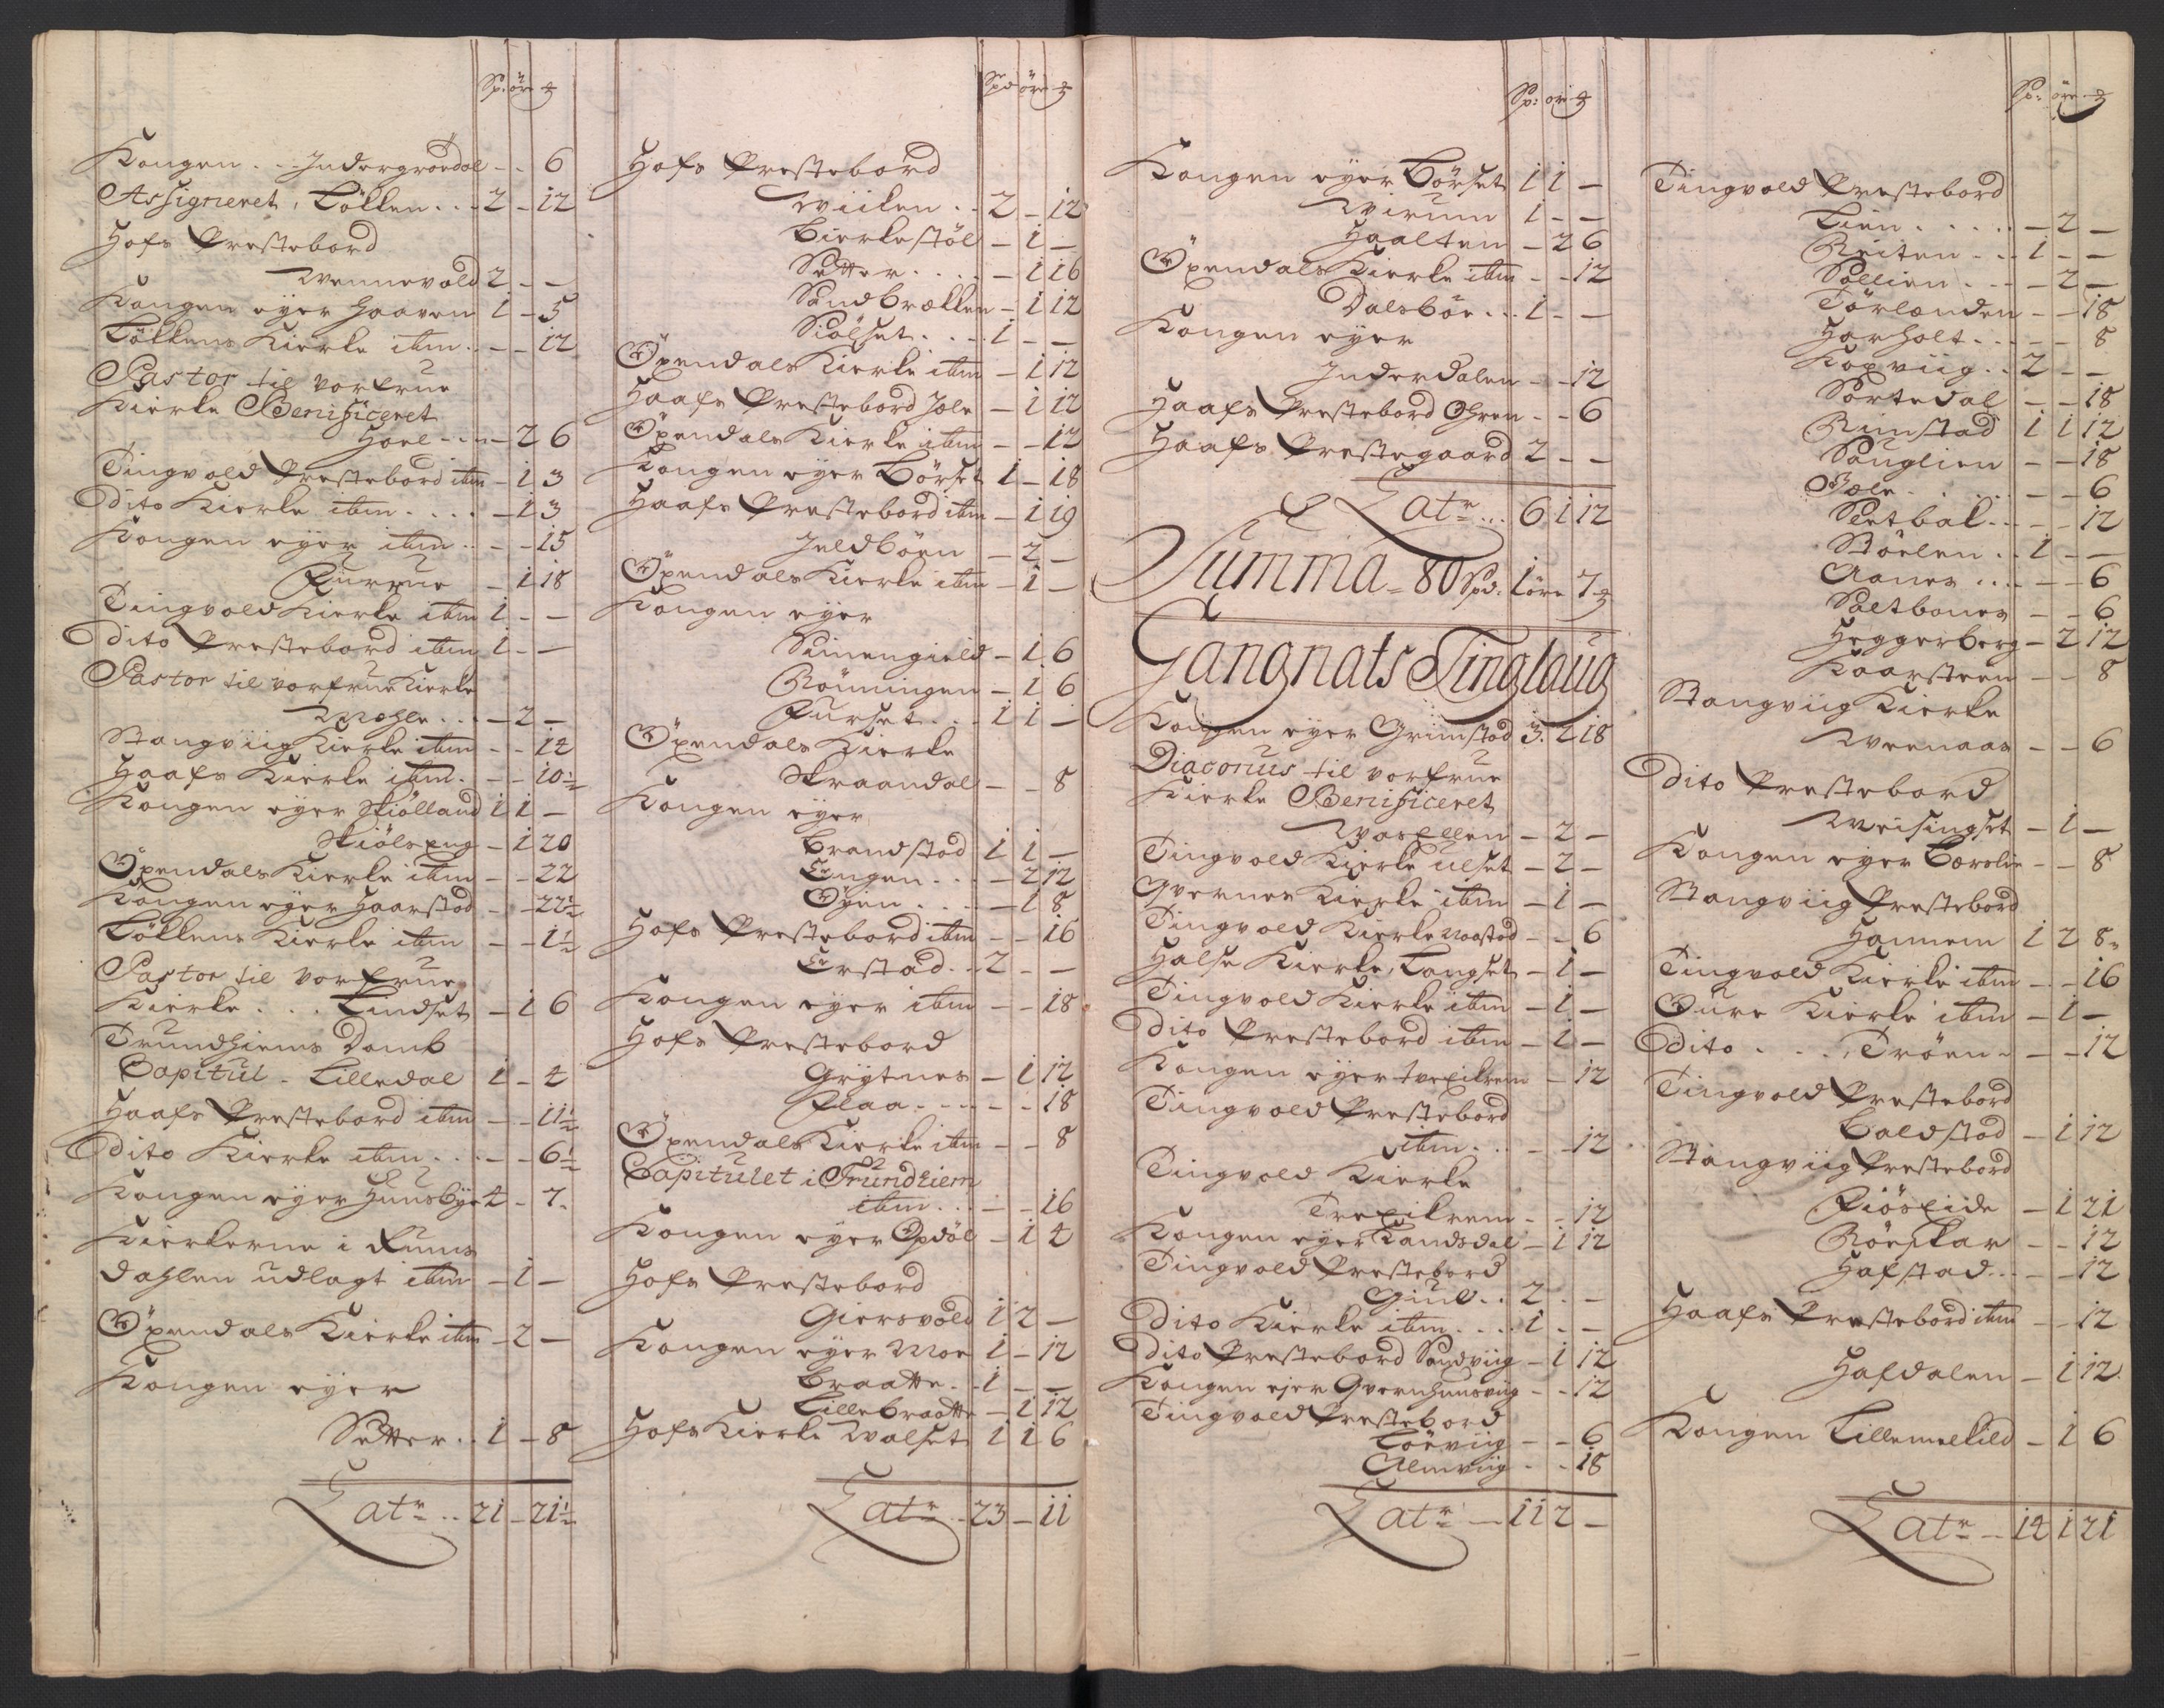 Sp: öre ₰
Kongen . . Indergrøndal - - 6
Assigneret, Løkken . . 2 - 12
Hofs Prestebord
Wennevold 2 - -
Kongen eyer Haaven 1 - 5
Løkkens Kierke ibm . - - 12
Pastor til vorfrue
Kierke Benificeret
Hoel - - - 2 6
Tingvold Prestebord ibm - 1 3
Dito Kierke ibm . . . . - 1 3
Kongen eyer ibm . . - - 15
Furrue - 1 18
Tingvold Kierke ibm 1 - -
Dito Prestebord ibm 1 - -
Pastor til vorfrue Kierke
Mæhle . . . - 2 -
Stangviig Kierke ibm - - 14
Haafs Kierke ibm . - - 10½
Kongen eyer Skiølland 1 1 -
Skiølseng - 1 20
Öxendals Kierke ibm - - 22
Kongen eyer Haarstad - - 22½
Løkkens Kierke ibm - - 1½
Pastor til vorfrue
Kierke . . . Lindset - 1 6
Trundhiems Domb
Capitul - Lilledal 1 - 4
Haafs Prestebord ibm - - 11½
Dito Kierke ibm . . . - - 6½
Kongen eyer Huusbye 4 - 7.
Kierkerne i Rums
dahlen udlagt ibm - 1 -
Öxendals Kierke ibm - 2 -
Kongen eyer
Setter . . 1 - 8
Latr . . 21 - 21½
Spd öre ₰
Hofs Prestebord
Wiiken . . 2 - 12
Bierkestøl - 1 -
Setter . . . . - 1 16
Sandbrækken - 1 12
Siølset . . . . 1 - -
Öxendals Kierke ibm - 1 12
Haafs Prestebord Jole - 1 12
Öxendals Kierke ibm - - 12
Kongen eyer Børset 1 - 18
Haafs Prestebord ibm - 1 19
Jeldbøen - 2 -
Öxendals Kierke ibm - 1 -
Kongen eyer
Simengield - 1 6
Rønningen - 1 6
Furset . . . 1 1 -
Öxendals Kierke
Skraandal - - 8
Kongen eyer
Brandstad 1 1 -
Engen . . . - 2 12
Øyen . . . . - 1 8
Hofs Prestebord ibm - - 16
Erstad . . 2 - -
Kongen eyer ibm - - 18
Hofs Prestebord
Grÿtnes - 1 12
Flaa . . . . - - 18
Öxendals Kierke ibm - - 8
Capitulet i Trundhiem
ibm . . . - - 16
Kongen eyer Opdøl - 1 4
Hofs Prestebord
Giersvold 1 2 -
Kongen eyer Moe 1 - 12
Braatte . . 1 - -
Lillebraatte - 1 12
Hofs Kierke Walset 1 1 6
Latr . . 23 - 11
Sp: ör ₰
Kongen eyer Børset 1 1 -
Wirum 1 - -
Haalten - 2 6
Öxendals Kierke ibm - - 12
Dalsbøe . . . 1 - -
Kongen eyer
Inderdalen - - 12
Haafs Prestebord Ohren - - 6
Haafs Prestegaard 2 - -
Latr . . . 6 1 12
Summa = 80 Spd: 1 öre 7 ₰
Gangnats Tinglaug
Kongen eyer Grimstad 3. 2 18
Diaconus til vorfrue
Kierke Benificeret
Waagllen - 2 -
Tingvold Kierke Ulset - 2 -
Qvernes Kierke ibm - 1 -
Tingvold Kierke Naastad - - 6
Halse Kierke, Langset - 1 -
Tingvold Kierke ibm - 1 -
Dito Prestebord ibm - 1 -
Kongen eyer Trexikrem - 12
Tingvold Prestebord
ibm . . . - - 12
Tingvold Kierke
Trexikrem - - 12
Kongen eyer Kandsdal - 1 12
Tingvold Prestebord
Giul . . 2 - -
Dito Kierke ibm . . . . 1 - -
Dito Prestebord Sandviig - 1 12
Kongen ejer Qvernhuusviig - - 12
Tingvold Prestebord
Løeviig - - 6
Almviig - - 18
Latr - 11 2 -
Sp: öre ₰
Tingvold Prestebord
Lien . . . . . - 2 -
Reiten . . . 1 - -
Sollien . . . - 2 -
Tørlænden - - 18
Harholt . . . - - 8
Kopviig . . 2 - -
Sortedal - - 18
Rimstad 1 1 12
Sauglien - - 18
Bæle . . . . . - - 6
Seetbak . . - - 12
Støelen . . 1 - -
Aanes . . . - - 6
Saltbones - - 6
Heggerberg - 2 12
Kaarsteen - - 8
Stangviig Kierke
Weenaas - - 6
Dito Prestebord
Weisingset - 1 -
Kongen eyer Bærslie - - 8
Stangviig Prestebord
Hannem 1 2 8
Tingvold Kierke ibm - - 16
Oure Kierke ibm - 1 -
Dito . . . , Trøen - - - 12
Tingvold Prestebord
Boldstad - 1 12
Stangviig Prestebord
Fiøseide - 1 21
Røeskar - - 12
Hafstad . . . - - 12
Haafs Prestebord ibm - - 12
Hafdalen - 1 12.
Kongen Lillemelkild - 1 6
Latr - - 14 1 21